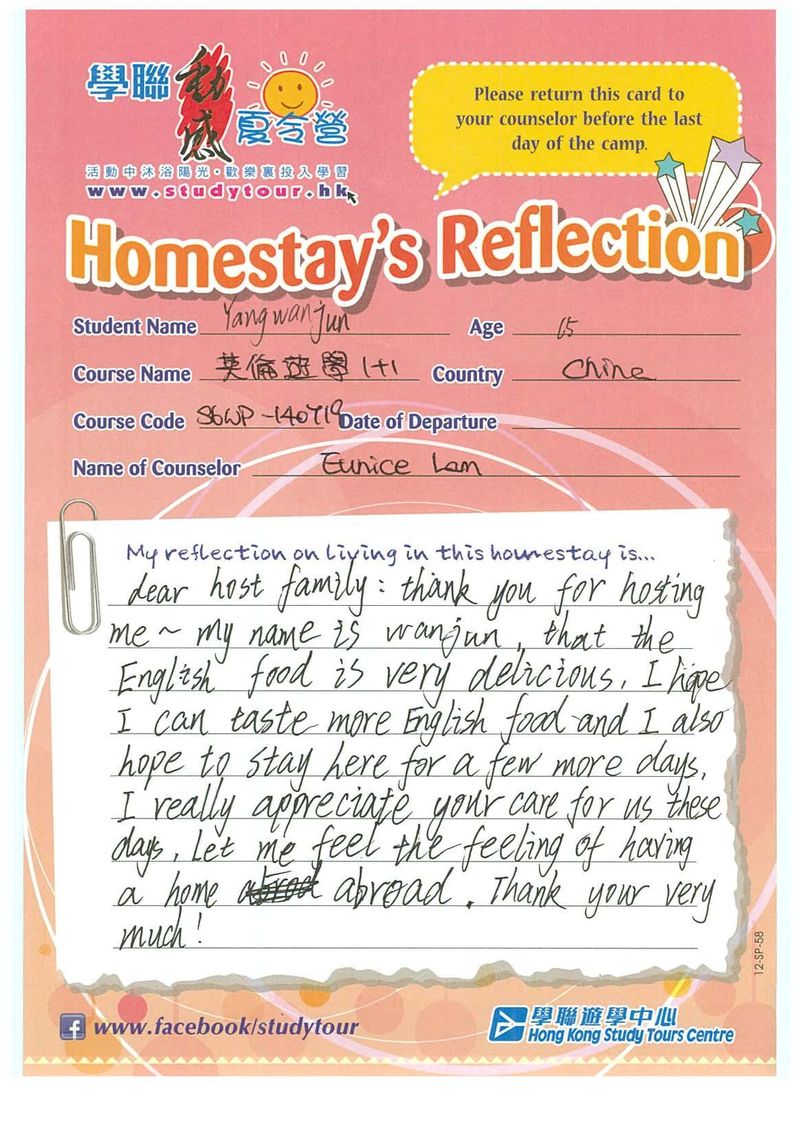 學聯動感夏令營
活動中沐浴陽光・歡樂裏投入學習
www.studytour.hk
Please return this card to
your counselor before the last
day of the camp.
Homestay's Reflection
Student Name Yangwanjun Age 15
Course Name 英倫遊學 1+1 Country China
Course Code SGWP-140719 Date of Departure
Name of Counselor Eunice Lam
My reflection on living in this homestay is...
dear host family: thank you for hosting
me ~ my name is wanjun, that the
English food is very delicious. I hope
I can taste more English food and I also
hope to stay here for a few more days.
I really appreciate your care for us these
days. Let me feel the feeling of having
a home abroad. Thank your very
much!
12-SP-58
www.facebook/studytour
學聯遊學中心
Hong Kong Study Tours Centre